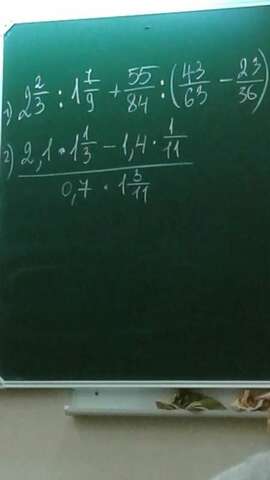 1) 2 2/3 : 1 1/9 + 55/84 : (43/63 − 23/36)
2) (2,1 · 1 1/3 − 1,4 · 1/11) / (0,7 · 1 3/11)